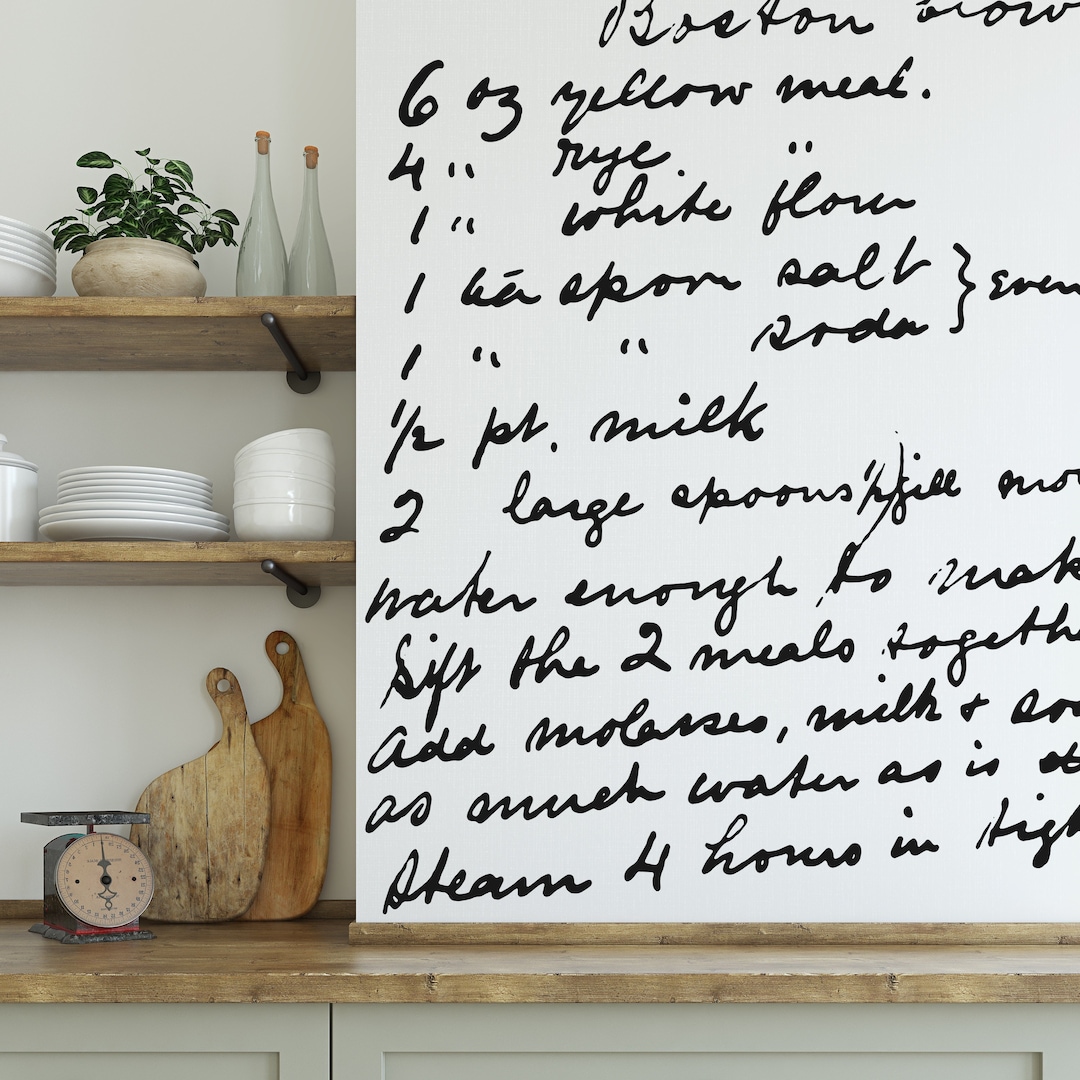 Boston brow
6 oz yellow meal.
4 " rye "
1 " white flour
1 tea spoon salt } even
1 " " soda
1/2 pt. milk
2 large spoons 1/2 gill mo
water enough to mak
Sift the 2 meals togethe
Add molasses, milk + so
as much water as is
Steam 4 hours in tigh